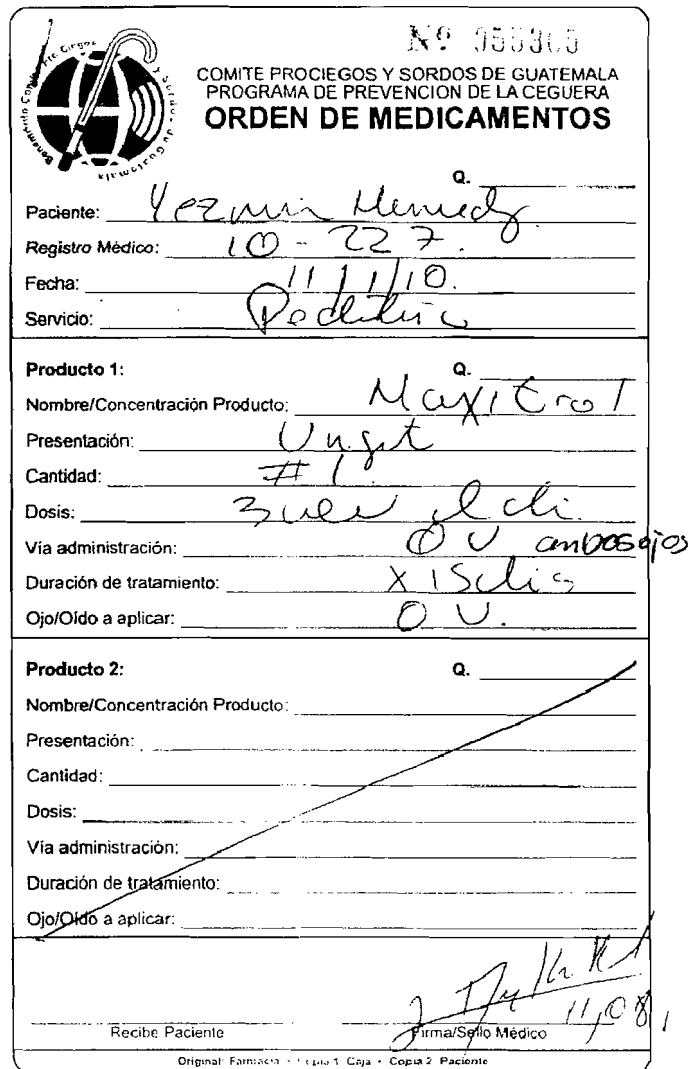 Benemérito Comité Pro Ciegos y Sordos de Guatemala
Nº
COMITE PROCIEGOS Y SORDOS DE GUATEMALA
PROGRAMA DE PREVENCION DE LA CEGUERA
ORDEN DE MEDICAMENTOS
Q.
Paciente: Yezmin
Registro Médico: 10-227.
Fecha: 11/1/10.
Servicio:
Producto 1: Q.
Nombre/Concentración Producto: Maxitrol
Presentación: Ungt
Cantidad: #1
Dosis: 3
Vía administración: OU ambos ojos
Duración de tratamiento: X 15
Ojo/Oído a aplicar: OU.
Producto 2: Q.
Nombre/Concentración Producto:
Presentación:
Cantidad:
Dosis:
Vía administración:
Duración de tratamiento:
Ojo/Oído a aplicar:
11,081
Recibe Paciente Firma/Sello Médico
Original: Farmacia • Copia 1: Caja • Copia 2: Paciente